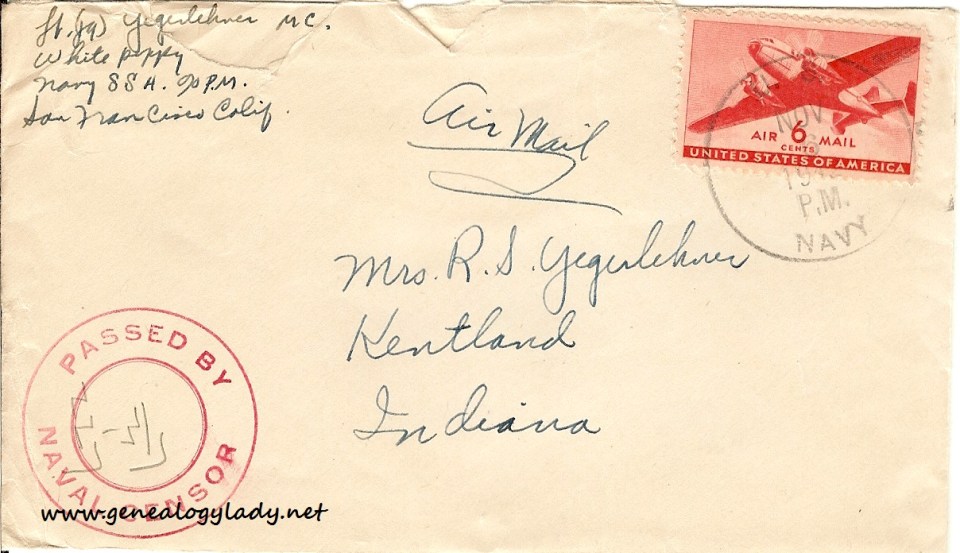 Lt. (jg) Yegerlehner M.C.
White Poppy
Navy 88 H. % P.M.
San Francisco Calif.
Air Mail
AIR 6 MAIL
CENTS
UNITED STATES OF AMERICA
NOV
6
P.M.
NAVY
Mrs. R. S. Yegerlehner
Kentland
Indiana
PASSED BY
NAVAL CENSOR
www.genealogylady.net